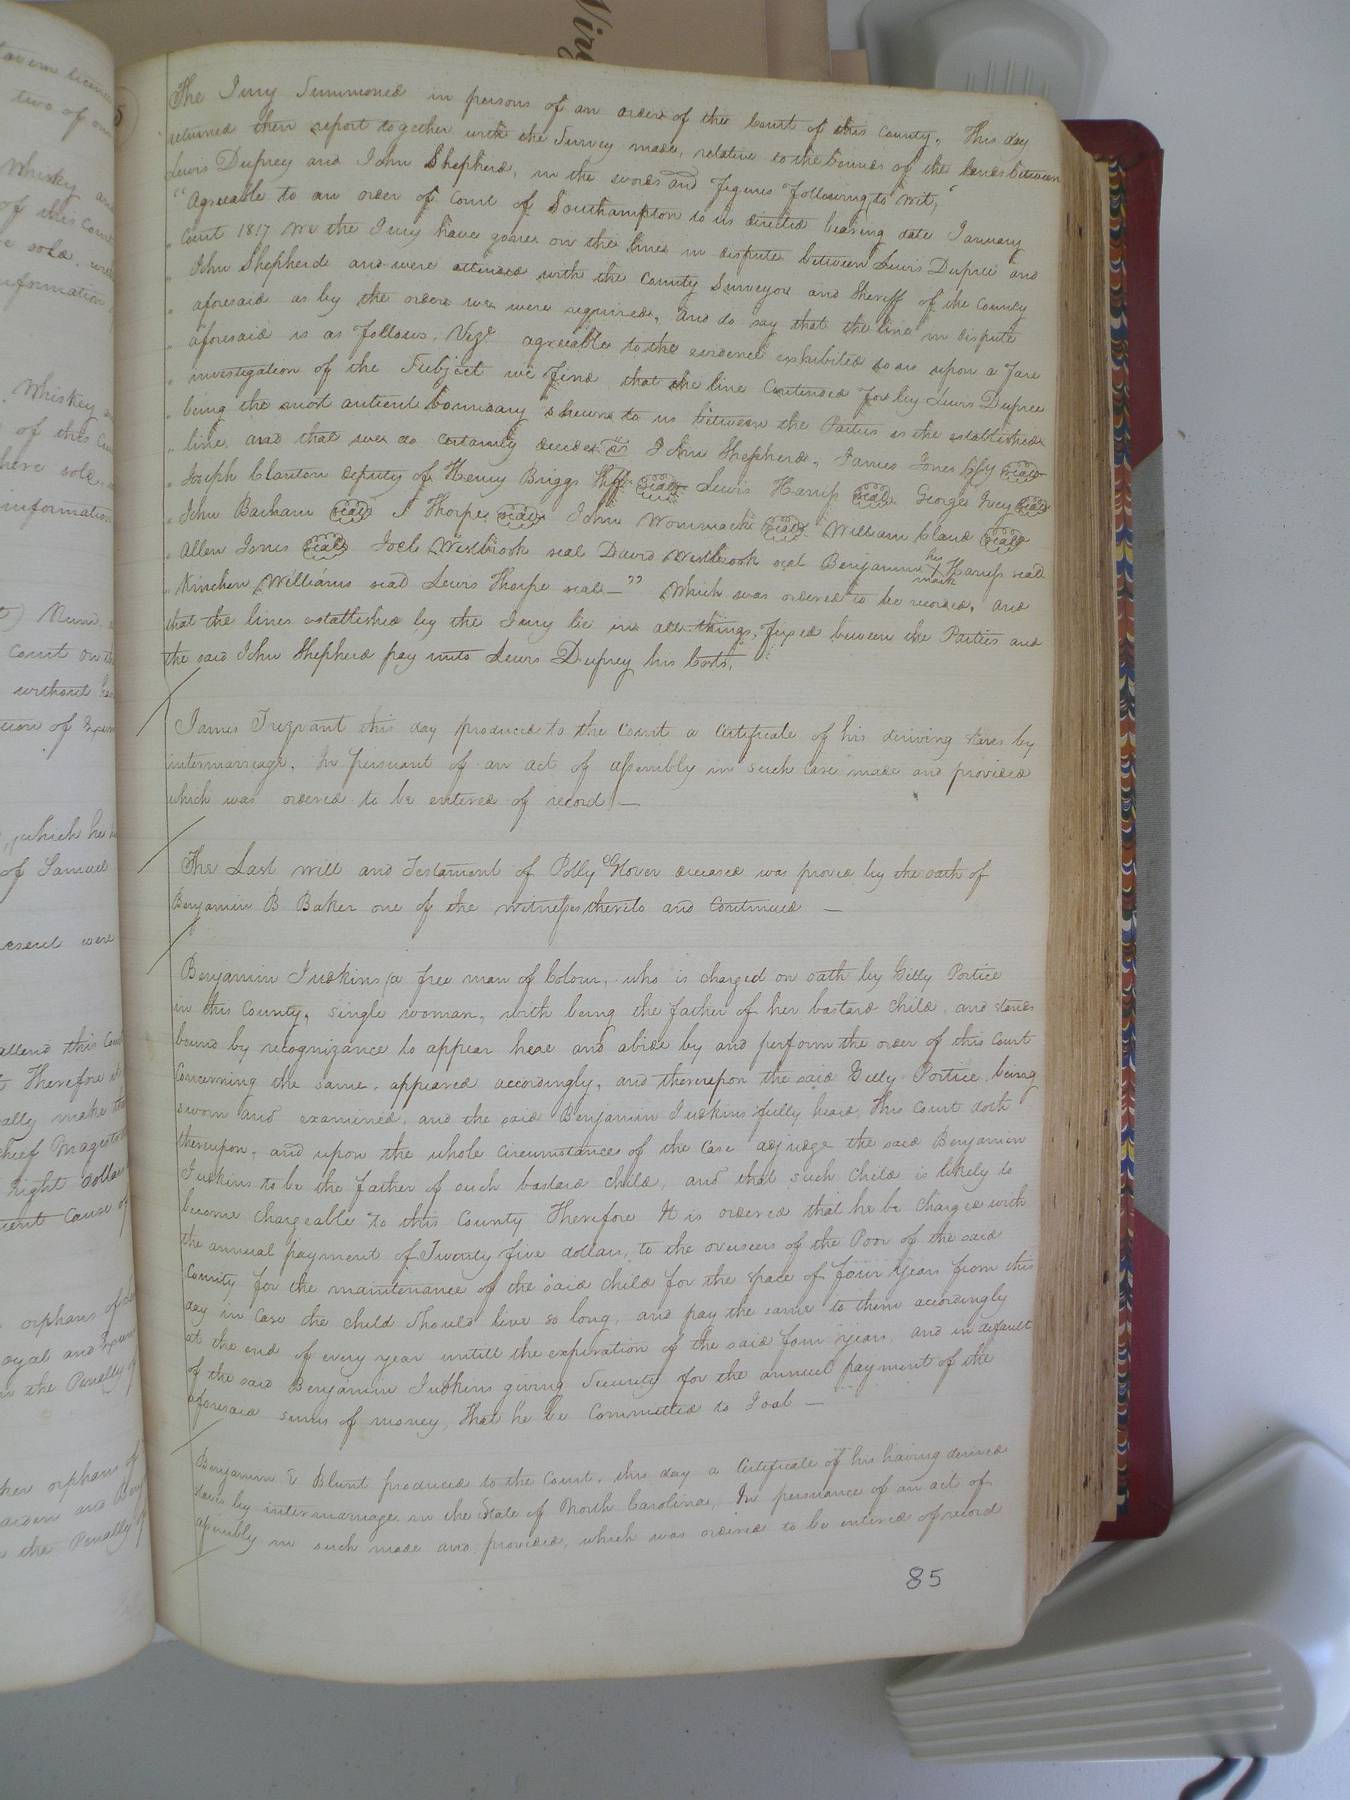 The Jury Summoned in persons of an order of the Court of this County. This day
returned then report together with the Survey made, relative to the bounds of the lands between
Lewis Duprey and John Shepherd, in the words and figures following (to wit,
"Agreeable to an order of Court of Southampton to us directed bearing date January
" Court 1817 We the Jury have gone on the lines in dispute between Lewis Dupree and
" John Shepherd and were attended with the County Surveyor and Sheriff of the County
" aforesaid as by the order we were required, and do say that the line in dispute
" aforesaid is as follows. Viz. agreeable to the evidence exhibited to us upon a fare
" investigation of the Subject we find that the line Contended for by Lewis Dupree
" being the most antient boundary shewn to us between the Parties is the established
" line, and that we do certainly decide John Shepherd, James Jones seal
" Joseph Clanton deputy of Henry Briggs Shff seal Lewis Harriss seal George Ivey seal
" John Barham seal J Thorpe seal John Wommack seal William Claud seal
" Allen Jones seal Joel Westbrook seal David Westbrook seal Benjamin his X mark Harriss seal
" Kinchen Williams seal Lewis Thorpe seal —" Which was ordered to be recorded, and
that the lines established by the Jury be in all things, fixed beween the Parties and
the said John Shepherd pay unto Lewis Duprey his Costs.
James Trezvant this day produced to the Court a Certificate of his deriving slaves by
intermarriage. In pursuant of an act of assembly in such case made and provided
which was ordered to be entered of record —
The Last will and Testament of Polly Glover deceased was proved by the oath of
Benjamin B Baker one of the witnesses thereto and Continued —
Benjamin Judkins (a free man of Colour, who is charged on oath by Gilly Portice
in this County, single woman, with being the father of her bastard child, and stands
bound by recognizance to appear here and abide by and perform the order of this Court
Concerning the same, appeared accordingly, and thereupon the said Gilly Portice being
sworn and examined, and the said Benjamin Judkins fully heard, this Court doth
thereupon, and upon the whole circumstances of the Case adjudge the said Benjamin
Judkins to be the father of such bastard child, and that such child is likely to
become chargeable to this County Therefore It is ordered that he be charged with
the annual payment of Twenty five dollars, to the overseers of the Poor of the said
County for the maintenance of the said child for the space of four years from this
day in case the child should live so long, and pay the same to them accordingly
at the end of every year untill the expiration of the said four years, and in default
of the said Benjamin Judkins giving Security for the annual payment of the
aforesaid sums of money, that he be Committed to Joal —
Benjamin E Blunt produced to the Court, this day a Certificate of his having derived
slaves by intermarriage in the State of North Carolina, In persuance of an act of
assembly in such made and provided, which was ordered to be entered of record
85